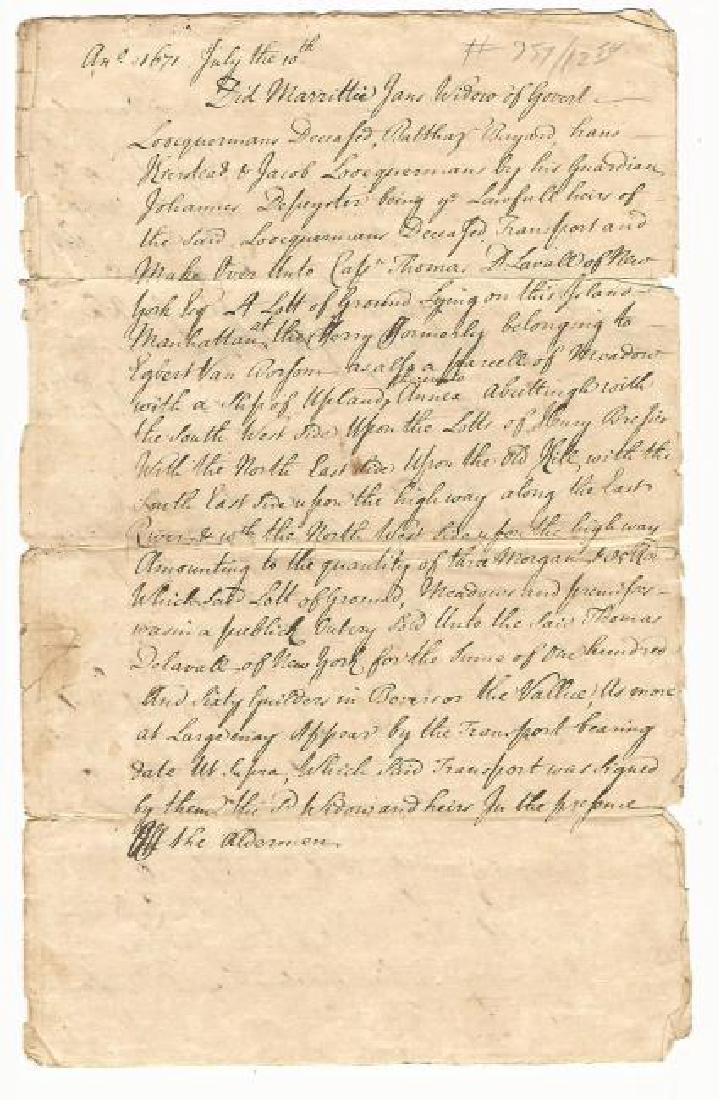 Ano 1671 July the 10th
Did Marrittie Jans Widow of Govert
Loocquermans Deceased, Balthaz Bayard, hans
Kierstead & Jacob Loocquermans by his Guardian
Johannes Depeyster being ye Lawfull heirs of
the said Loocquermans Deceased, Transport and
Make Over Unto Capn Thomas D Lavall of New
York Esqr A Lott of Ground Lying on this Island
Manhattan at the fferry fformerly belonging to
Egbert Van Borsom as also a parcell of Meadow
with a Slip of Upland, Annex abuttingh with
the South West side Upon the Lotts of Henry Bresier
With the North East side Upon the Old Kill, with the
South East side upon the high way along the East
River & with the North West side upon the high way
Amounting to the quantity of Morgan
Which said Lott of Ground, Meadows and premises
was in a publick Outcry Sold Unto the said Thomas
Delavall of New York for the Sume of One hundred
And Sixty Guilders in Bevers or the Vallue, As more
at Large may Appear by the Transport bearing
date Ut Supra, Which said Transport was Signed
by them the sd Widow and heirs In the presence
Off the Aldermen